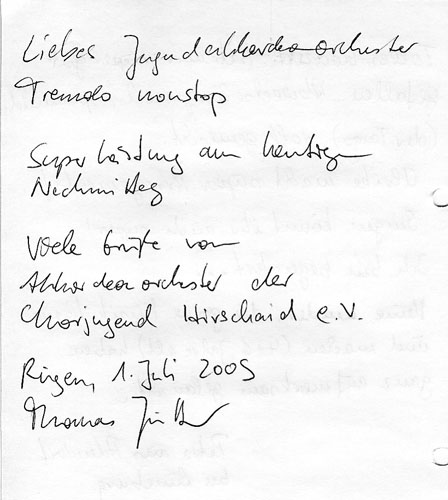 Liebes Jugendakkordeonorchester
Tremolo nonstop
Super Leistung am heutigen
Nachmittag
Viele Grüße vom
Akkordeonorchester der
Chorjugend Hirschaid e.V.
1. Juli 2005
Thomas